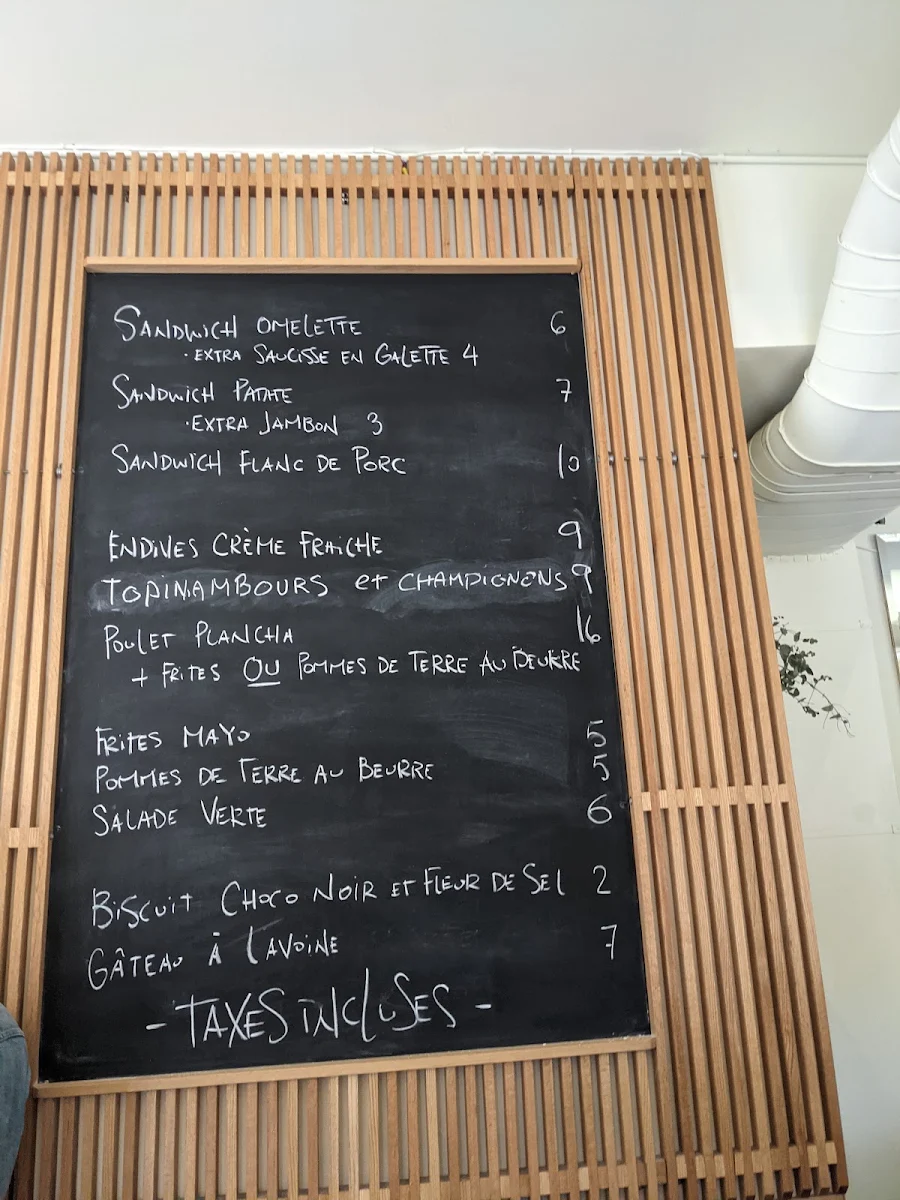 SANDWICH OMELETTE 6
· EXTRA SAUCISSE EN GALETTE 4
SANDWICH PATATE 7
· EXTRA JAMBON 3
SANDWICH FLANC DE PORC 10
ENDIVES CRÈME FRAICHE 9
TOPINAMBOURS et CHAMPIGNONS 9
POULET PLANCHA 16
+ FRITES OU POMMES DE TERRE AU BEURRE
FRITES MAYO 5
POMMES DE TERRE AU BEURRE 5
SALADE VERTE 6
BISCUIT CHOCO NOIR ET FLEUR DE SEL 2
GÂTEAU À L'AVOINE 7
- TAXES INCLUSES -